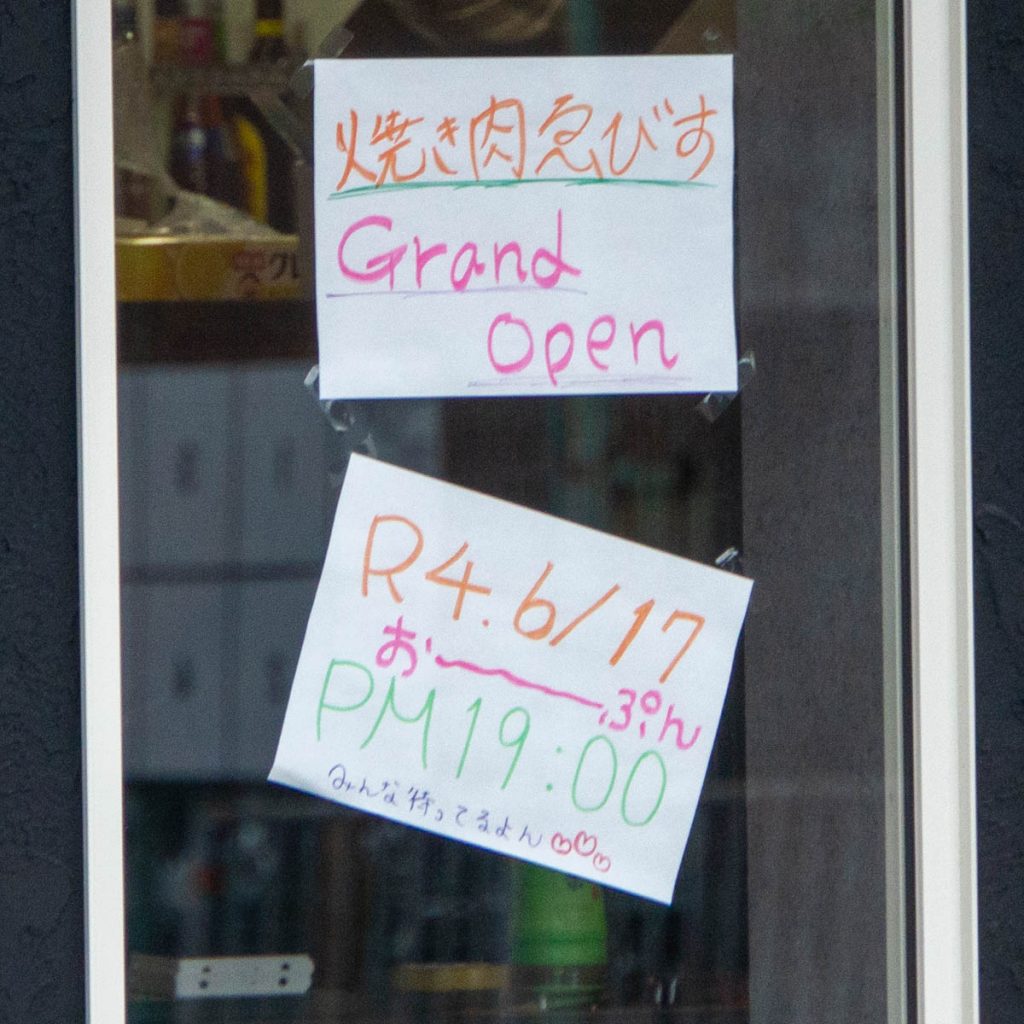 焼き肉ゑびす
Grand
Open
R4.6/17
お〜ぷん
PM19:00
みんな待ってるよん♡♡♡